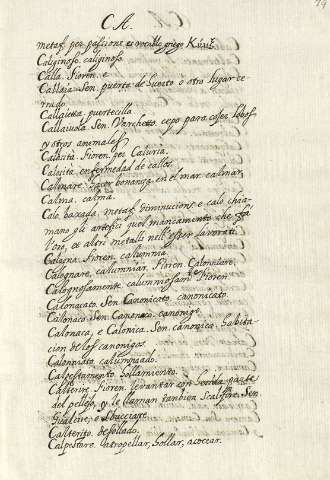 79
CA.
metaf. per passione es vocablo griego
Caliginoso. caliginoso.
Calla. Fioren. e
Callaia. Sen. puerta de huerto ò otro lugar ce
rrado.
Callaietta. puertecilla.
Callaiuola. Sen. Varchetto. cepo para coger lobos
y otros animales.
Caluta. Fioren. per Caluria.
Calosità. enfermedad de callos.
Calmare. hacer bonanza en el mar. calmar.
Calma. calma.
Calo. baxada. metaf. diminucion e calo chia-
mano gli artefici quel mancamento che fà
l'oro, et altri metalli nell'esser lavorati.
Calogna. Fioren. calumnia.
Calognare. calumniar. Fioren. Calonniare.
Calognosamente. calumniosamte. Fioren.
Calonacato. Sen. Canonicato. canonicato.
Calonaco. Sen. Canonaco. canonigo.
Calonaca, e Calonica. Sen. canonica. habita-
cion de los canonigos.
Calonniato. calumniado.
Calpestamento. hollamiento.
Calterire. Fioren. levantar con herida parte
del pellejo, y le llaman tambien Scalfire. Sen.
Gualeire, e sbucciare.
Calterito. desollado.
Calpestare. atropellar, hollar, acocear.